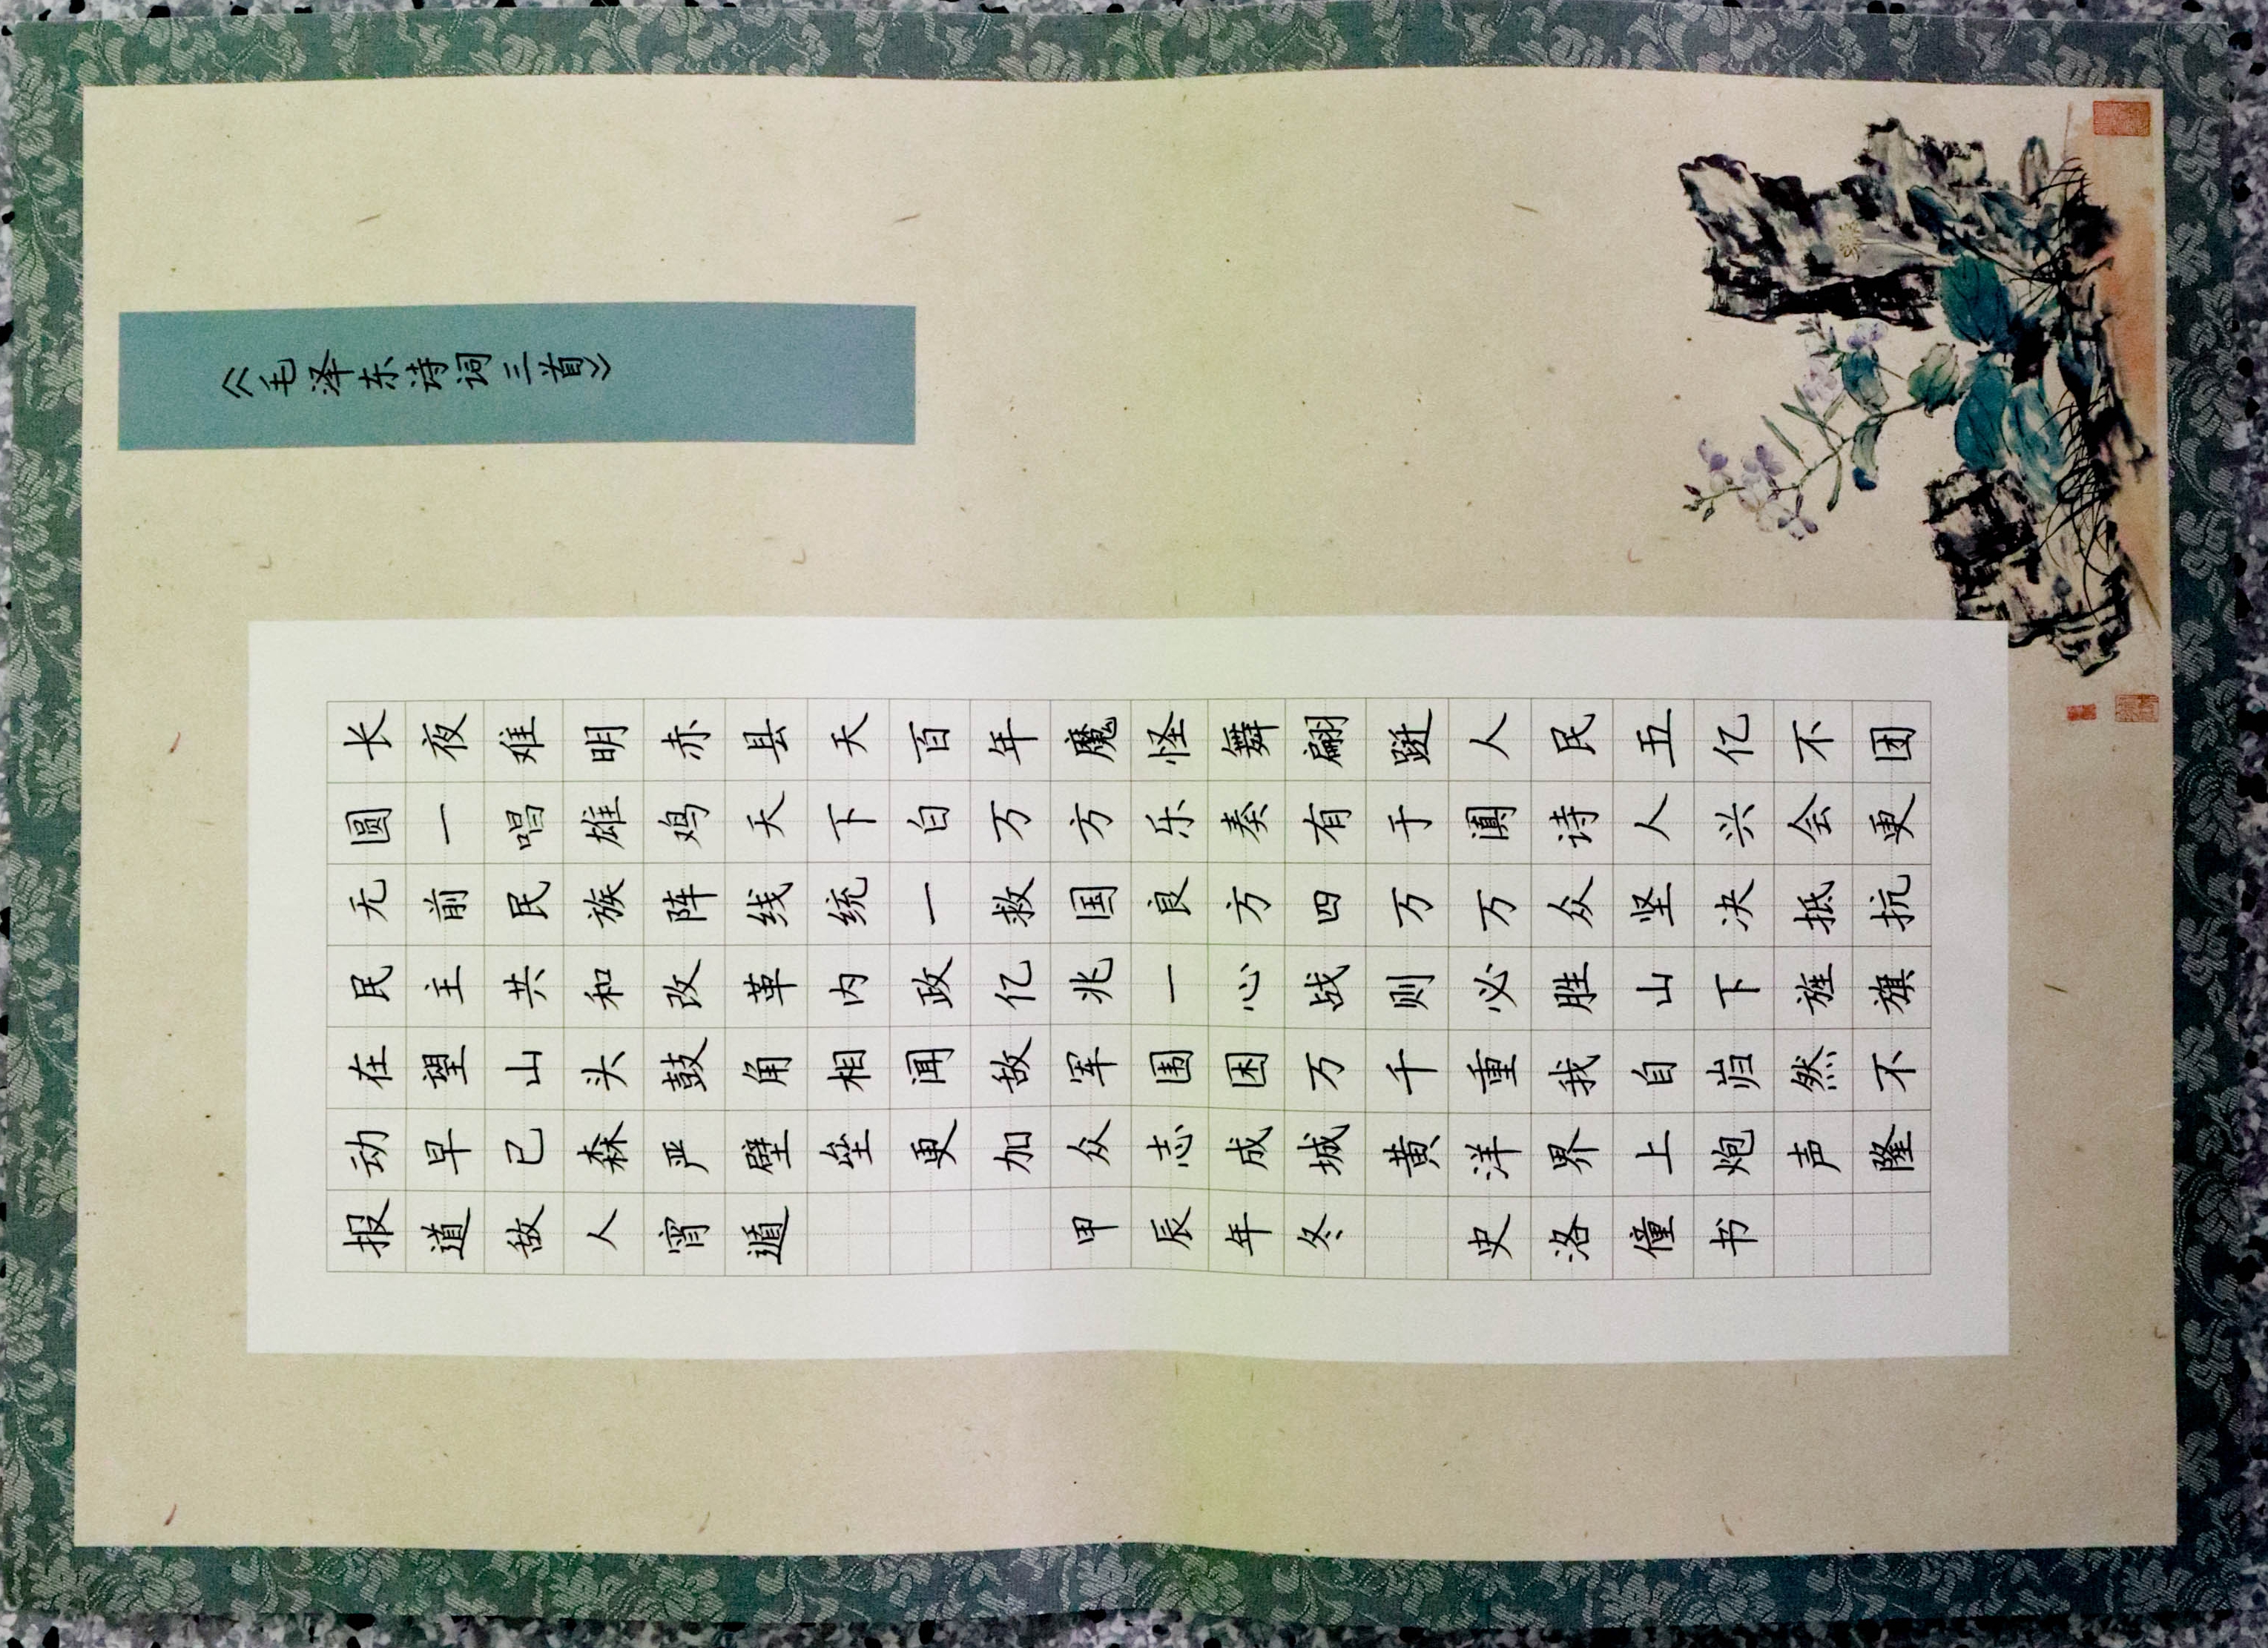 《毛泽东诗词三首》
长夜难明赤县天百年魔怪舞翩跹人民五亿不团
圆一唱雄鸡天下白万方乐奏有于阗诗人兴会更
无前民族阵线统一救国良方四万万众坚决抵抗
民主共和改革内政亿兆一心战则必胜山下旌旗
在望山头鼓角相闻敌军围困万千重我自岿然不
动早已森严壁垒更加众志成城黄洋界上炮声隆
报道敌人宵遁 甲辰年冬 史洛僮书